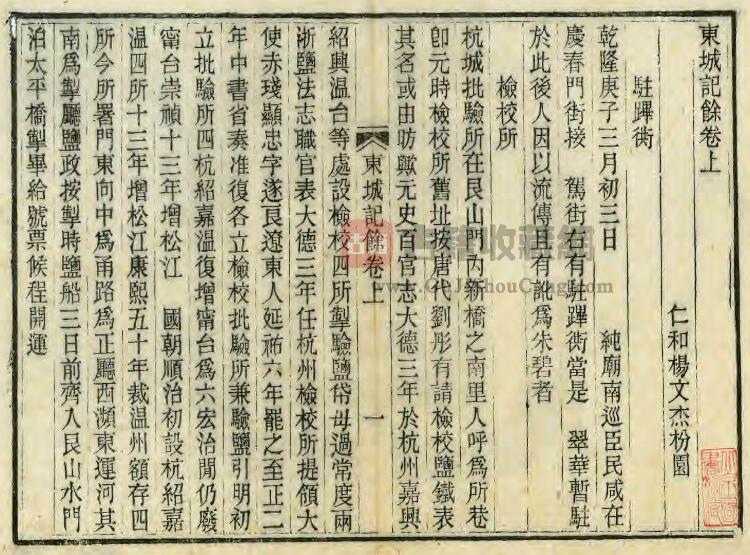 東城記餘卷上
仁和楊文杰枌園
駐蹕衖
乾隆庚子三月初三日 純廟南巡臣民咸在
慶春門街接 駕街右有駐蹕衖當是 翠華暫駐
於此後人因以流傳且有訛爲朱碧者
檢校所
杭城批驗所在艮山門內新橋之南里人呼爲所巷
卽元時檢校所舊址按唐代劉彤有請檢校鹽鐵表
其名或由昉歟元史百官志大德三年於杭州嘉興
東城記餘卷上 一
紹興温台等處設檢校四所掣驗鹽岱毋過常度兩
浙鹽法志職官表大德三年任杭州檢校所提領大
使赤琖顯忠字遂良遼東人延祐六年罷之至正二
年中書省奏准復各立檢校批驗所兼驗鹽引明初
立批驗所四杭紹嘉温復增甯台爲六宏治閒仍廢
甯台崇禎十三年增松江 國朝順治初設杭紹嘉
温四所十三年增松江康熙五十年裁温州額存四
所今所署門東向中爲甬路爲正廳西瀕東運河其
南爲掣廳鹽政按掣時鹽船三日前齊入艮山水門
泊太平橋掣畢給號票候程開運